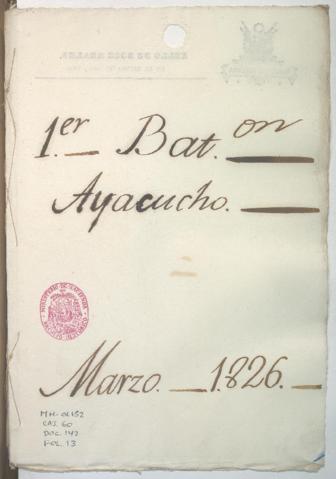 1.er Bat.on
Ayacucho.
Marzo. 1826.
MH-OL152
CAJ. 60
DOC. 142
FOL. 13